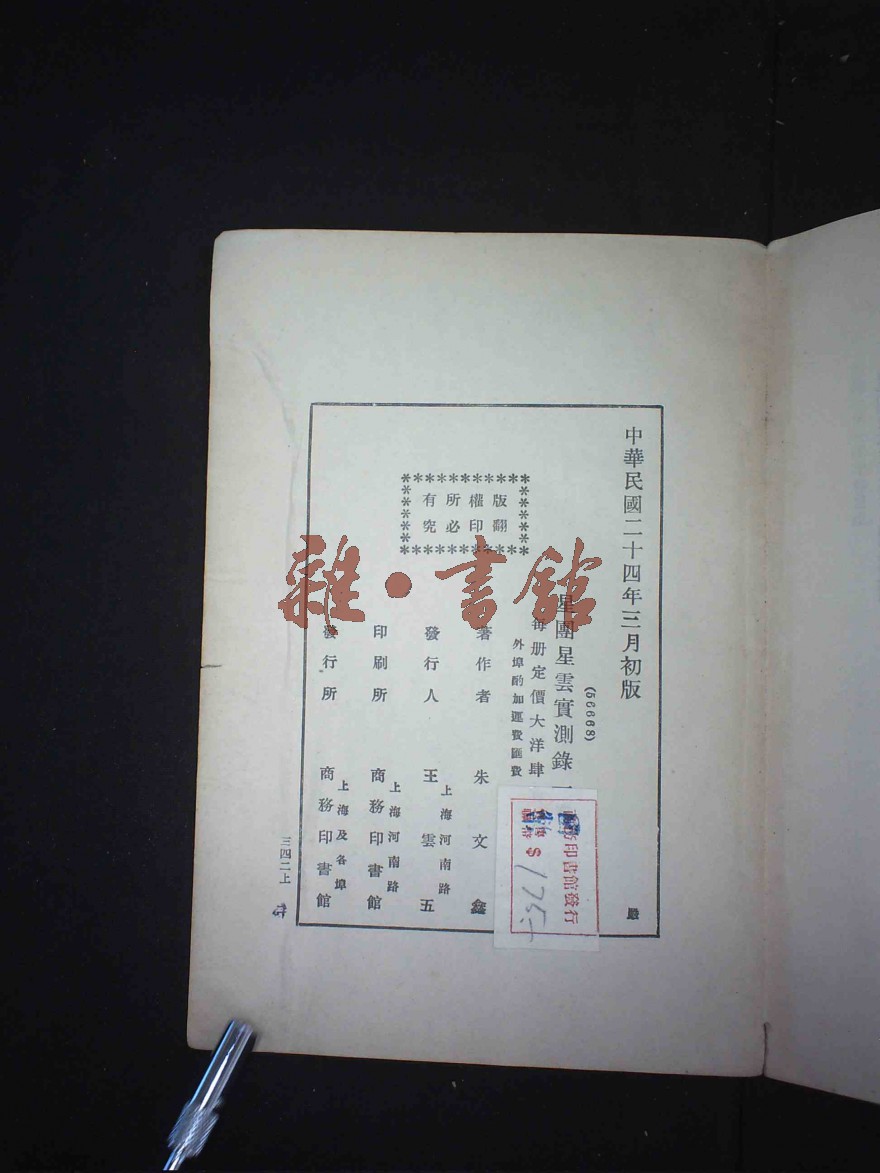 中華民國二十四年三月初版
(56668)
星團星雲實測錄一
每册定價大洋肆
外埠酌加運費匯費
版權所有
翻印必究
著作者 朱文鑫
發行人 王雲五
上海河南路
印刷所 商務印書館
上海河南路
發行所 商務印書館
上海及各埠
三四二上
印書館發行
$
雜·書館